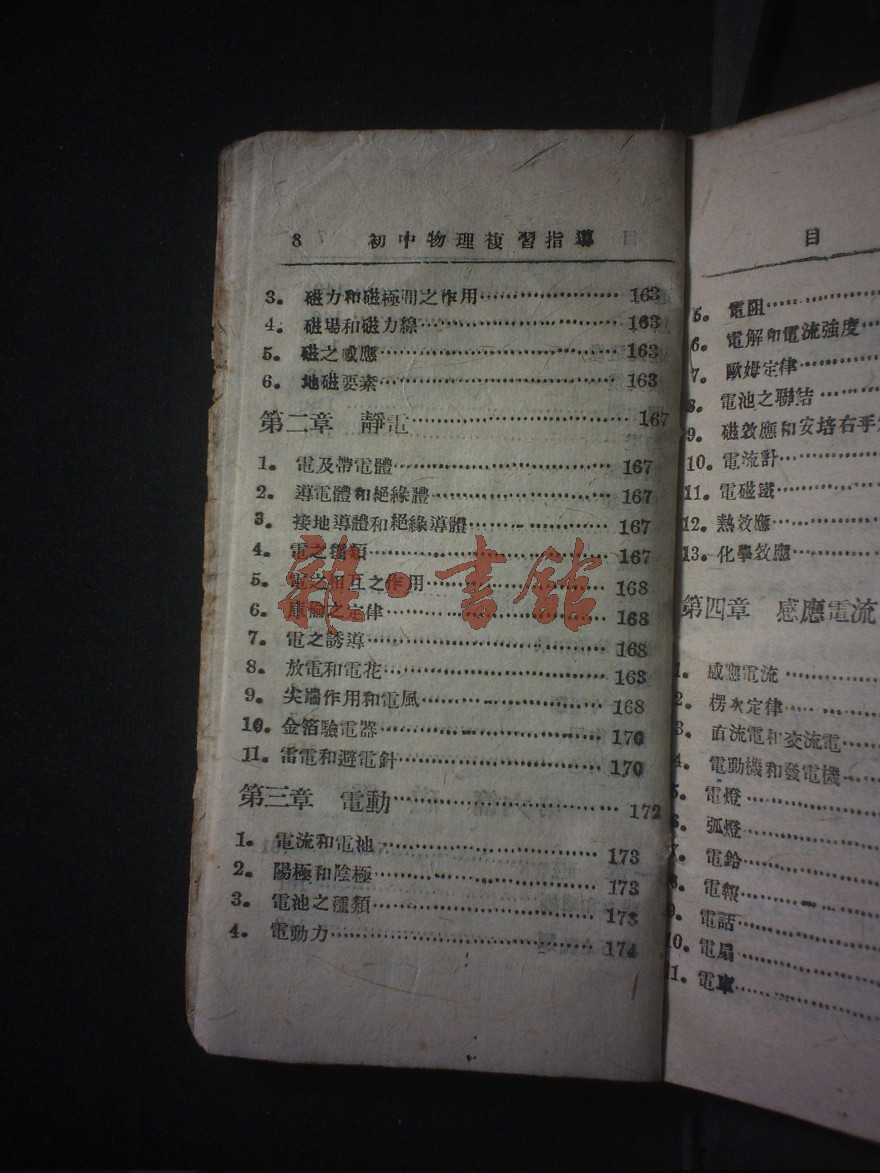 8 初中物理複習指導
3. 磁力和磁極間之作用 163
4. 磁場和磁力線 163
5. 磁之感應 163
6. 地磁要素 163
第二章 靜電 167
1. 電及帶電體 167
2. 導電體和絕緣體 167
3. 接地導體和絕緣導體 167
4. 電之種類 167
5. 電之相互之作用 168
6. 庫倫之定律 168
7. 電之誘導 168
8. 放電和電花 168
9. 尖端作用和電風 168
10. 金箔驗電器 170
11. 雷電和避電針 170
第三章 電動 172
1. 電流和電池 173
2. 陽極和陰極 173
3. 電池之種類 173
4. 電動力 174
雜·書館
目
5. 電阻
6. 電解和電流強度
7. 歐姆定律
8. 電池之聯結
9. 磁效應和安培右手
10. 電流計
11. 電磁鐵
12. 熱效應
13. 化學效應
第四章 感應電流
1. 感應電流
2. 楞次定律
3. 直流電和交流電
4. 電動機和發電機
5. 電燈
6. 弧燈
7. 電鈴
8. 電報
9. 電話
10. 電扇
11. 電車